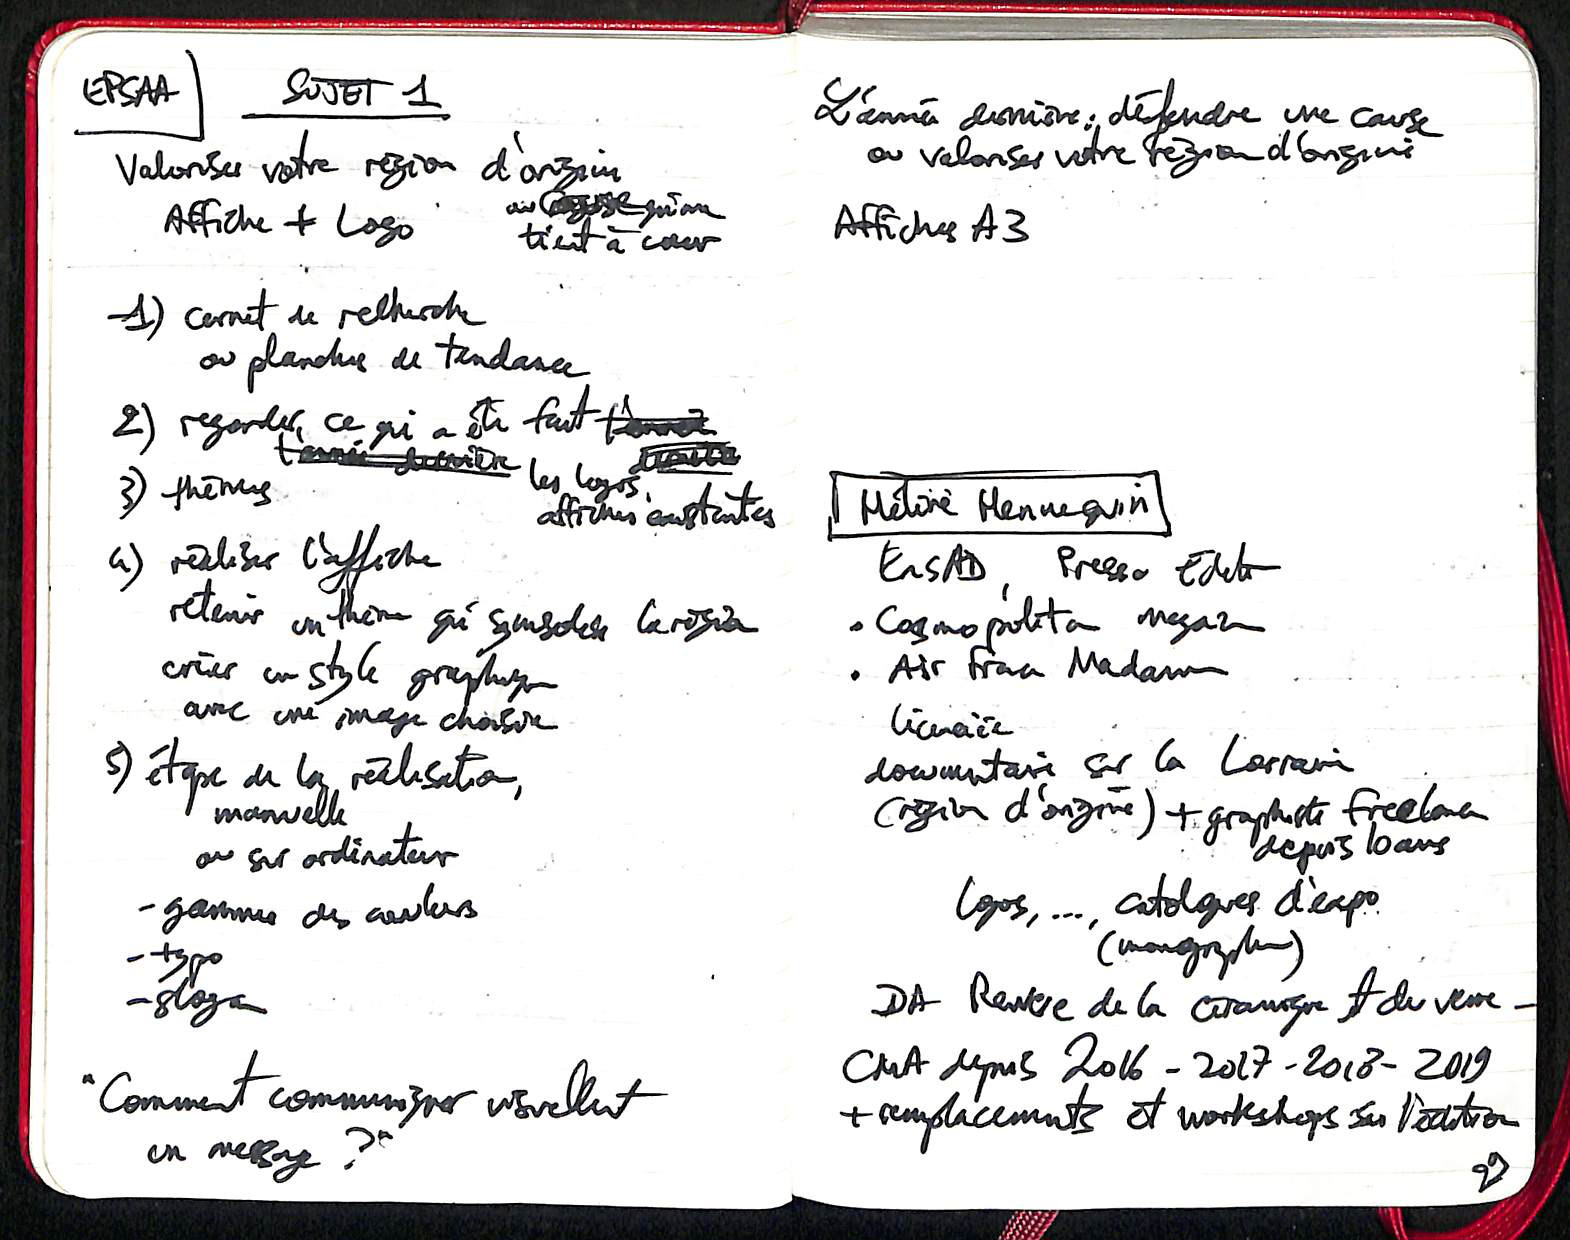 EPSAA
SUJET 1
Valoriser votre région d'origine
Affiche + Logo
ou cause qui me
tient à cœur
1) carnet de recherche
ou planches de tendance
2) regarder ce qui a été fait l'année
dernière
l'année dernière
les logos,
affiches existantes
3) thèmes
4) réaliser l'affiche
retenir un thème qui symbolise la région
créer un style graphique
avec une image choisie
5) étape de la réalisation,
manuelle
ou sur ordinateur
- gammes des couleurs
- typo
- slogan
"Comment communiquer visuellement
un message ?"
L'année dernière : défendre une cause
ou valoriser votre région d'origine
Affiches A3
Hennequin
EnsAD, Presse Edition
• Cosmopolitan magazine
• Air France Madame
documentaire sur la Lorraine
(région d'origine) + graphiste freelance
depuis 10 ans
logos, ..., catalogues d'expo
(monographie)
DA Revue de la céramique et du verre -
CMA depuis 2016 - 2017 - 2018 - 2019
+ remplacements et workshops sur l'édition